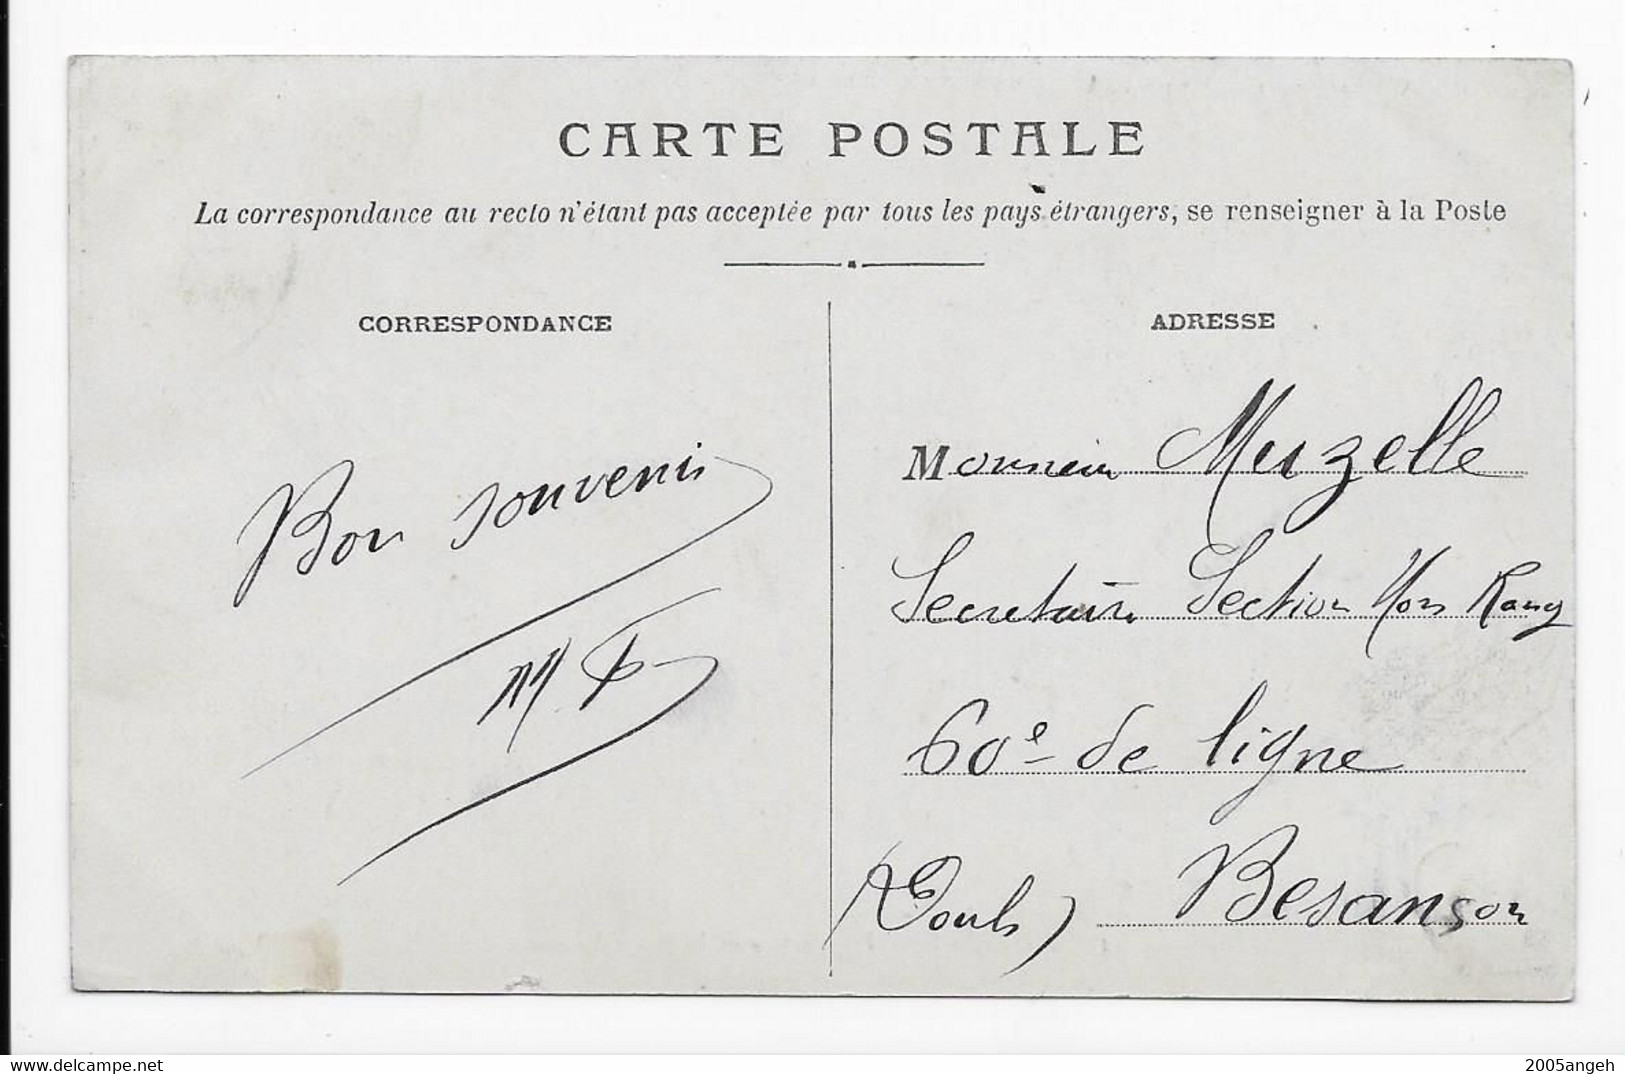 CARTE POSTALE
La correspondance au recto n'étant pas acceptée par tous les pays étrangers, se renseigner à la Poste
CORRESPONDANCE
Bon souvenir
ADRESSE
Monsieur Muzelle
Secretaire Section Hors Rang
60e de ligne
(Doubs) Besançon
https://www.delcampe.net
2005angeh